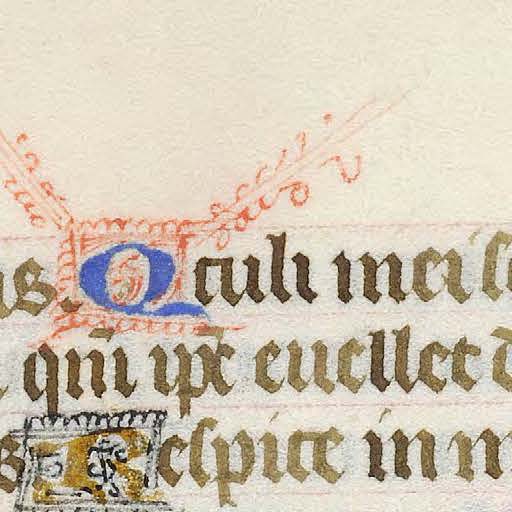 us. Qculi mei se
qm̄ ip̄e euellet d
s Respice in m